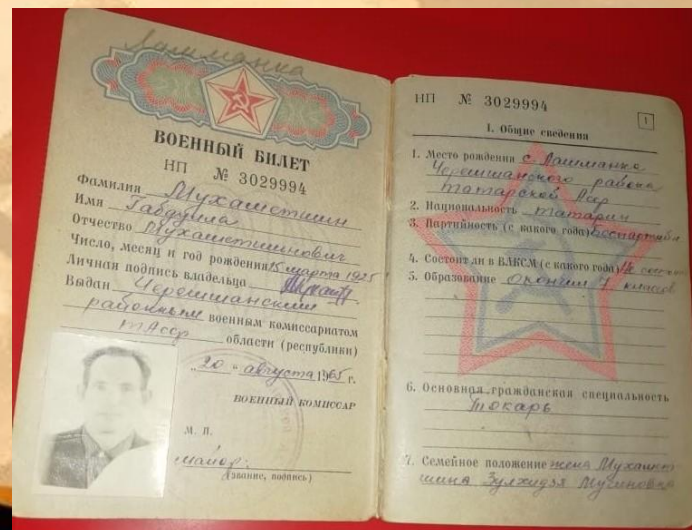 Лашманка
ВОЕННЫЙ БИЛЕТ
НП № 3029994
Фамилия Мухаметшин
Имя Габдулла
Отчество Мухаметшинович
Число, месяц и год рождения 15 марта 1925
Личная подпись владельца
Выдан Черемшанским
районным военным комиссариатом
ТАССР области (республики)
"20" августа 1965 г.
ВОЕННЫЙ КОМИССАР
М. П.
майор:
(звание, подпись)
НП № 3029994
1
I. Общие сведения
1. Место рождения с. Лашманка
Черемшанского района
Татарской АССР
2. Национальность татарин
3. Партийность (с какого года) беспартийн
4. Состоит ли в ВЛКСМ (с какого года) не состоит
5. Образование окончил 7 классов
6. Основная гражданская специальность
Токарь
7. Семейное положение жена Мухамет
шина Зулхидзя